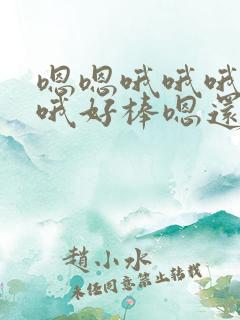 嗯嗯哦哦哦
哦好棒嗯還
趙小水
未經同意禁止轉載